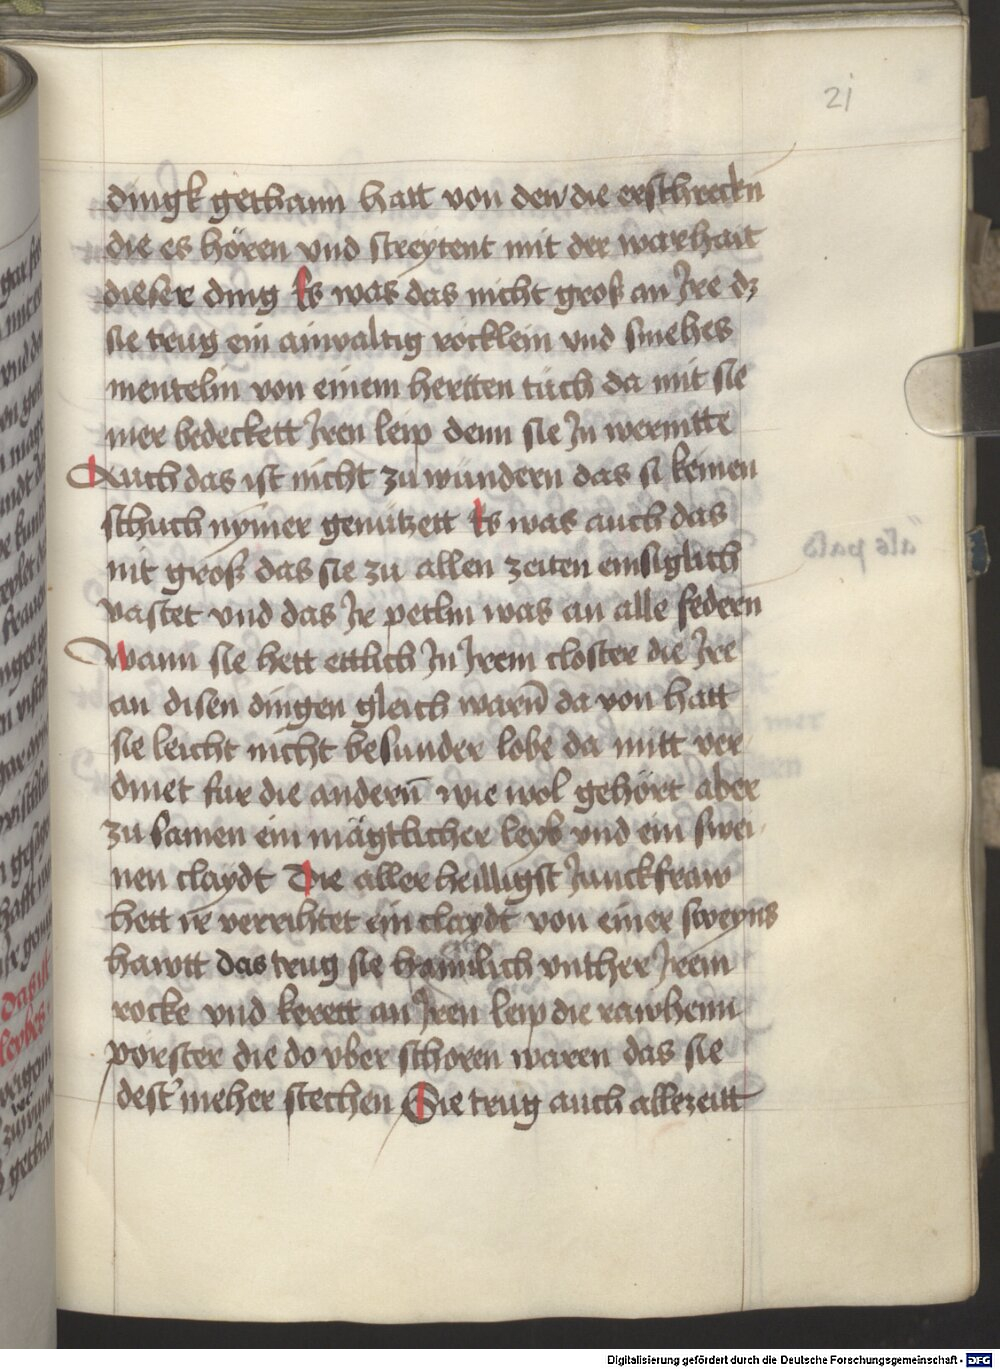 21
dingk gethann hatt von den die erschreckn
die es hören vnd streytent mit der warhait
dieser ding Es was das nicht groß an Jre dz
sie trug ein ainvaltig röcklein vnd smehes
mentelin von einem hertten tüch da mit sie
mer bedeckett Jren leip denn sie Jn wermtte
Auch das ist nicht zu wündern das si keinen
schuch nymer genützett Es was auch das
nit groß das sie zu allen zeiten emsiglich
vastet vnd das Jr petlin was an alle federn
Wann sie hett ettlich Jn Jrem closter die Jre
an disen dingen gleich warn̄ da von hatt
sie leicht nicht besunder lobe da mitt ver
dinet fur die andern̄ wie wol gehört aber
zu samen ein mägtlicher leyb vnd ein swei
nen claydt Die aller heilligst Junckfraw
hett ir verrihtet ein claydt von einer sweyns
hawtt das trug sie hamilich vnther Jrem
rocke vnd kerett an Jren leip die rawhenn
porster die do vber schoren waren das sie
dest' meher stechen Sie trug auch allezeitt
Digitalisierung gefördert durch die Deutsche Forschungsgemeinschaft - DFG